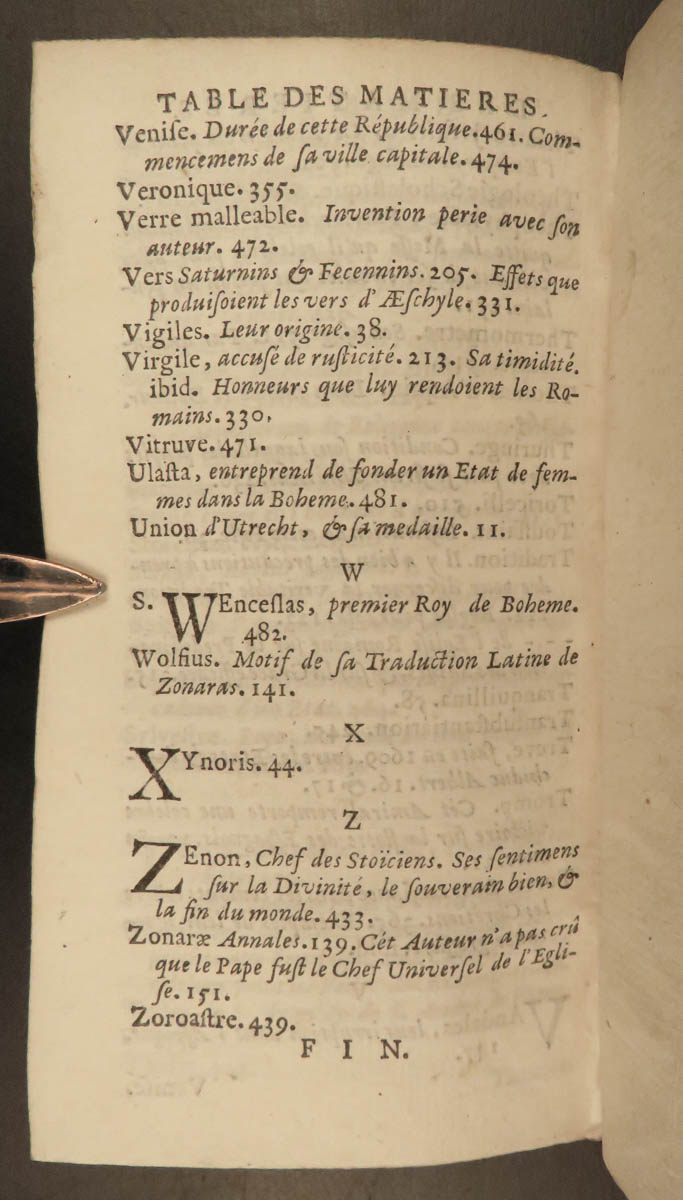 TABLE DES MATIERES.
Veniſe. Durée de cette République.461. Com-
mencemens de ſa ville capitale.474.
Veronique.355.
Verre malleable. Invention perie avec ſon
auteur. 472.
Vers Saturnins & Fecennins.205. Effets que
produiſoient les vers d'Æſchyle.331.
Vigiles. Leur origine.38.
Virgile, accuſé de ruſticité.213. Sa timidité.
ibid. Honneurs que luy rendoient les Ro-
mains.330.
Vitruve.471.
Ulaſta, entreprend de fonder un Etat de fem-
mes dans la Boheme.481.
Union d'Utrecht, & ſa medaille. 11.
W
S. WEnceſlas, premier Roy de Boheme.
482.
Wolfius. Motif de ſa Traduction Latine de
Zonaras.141.
X
XYnoris.44.
Z
ZEnon, Chef des Stoïciens. Ses ſentimens
ſur la Divinité, le ſouverain bien, &
la fin du monde.433.
Zonaræ Annales.139. Cét Auteur n'a pas crû
que le Pape fuſt le Chef Univerſel de l'Egli-
ſe.151.
Zoroaſtre.439.
FIN.